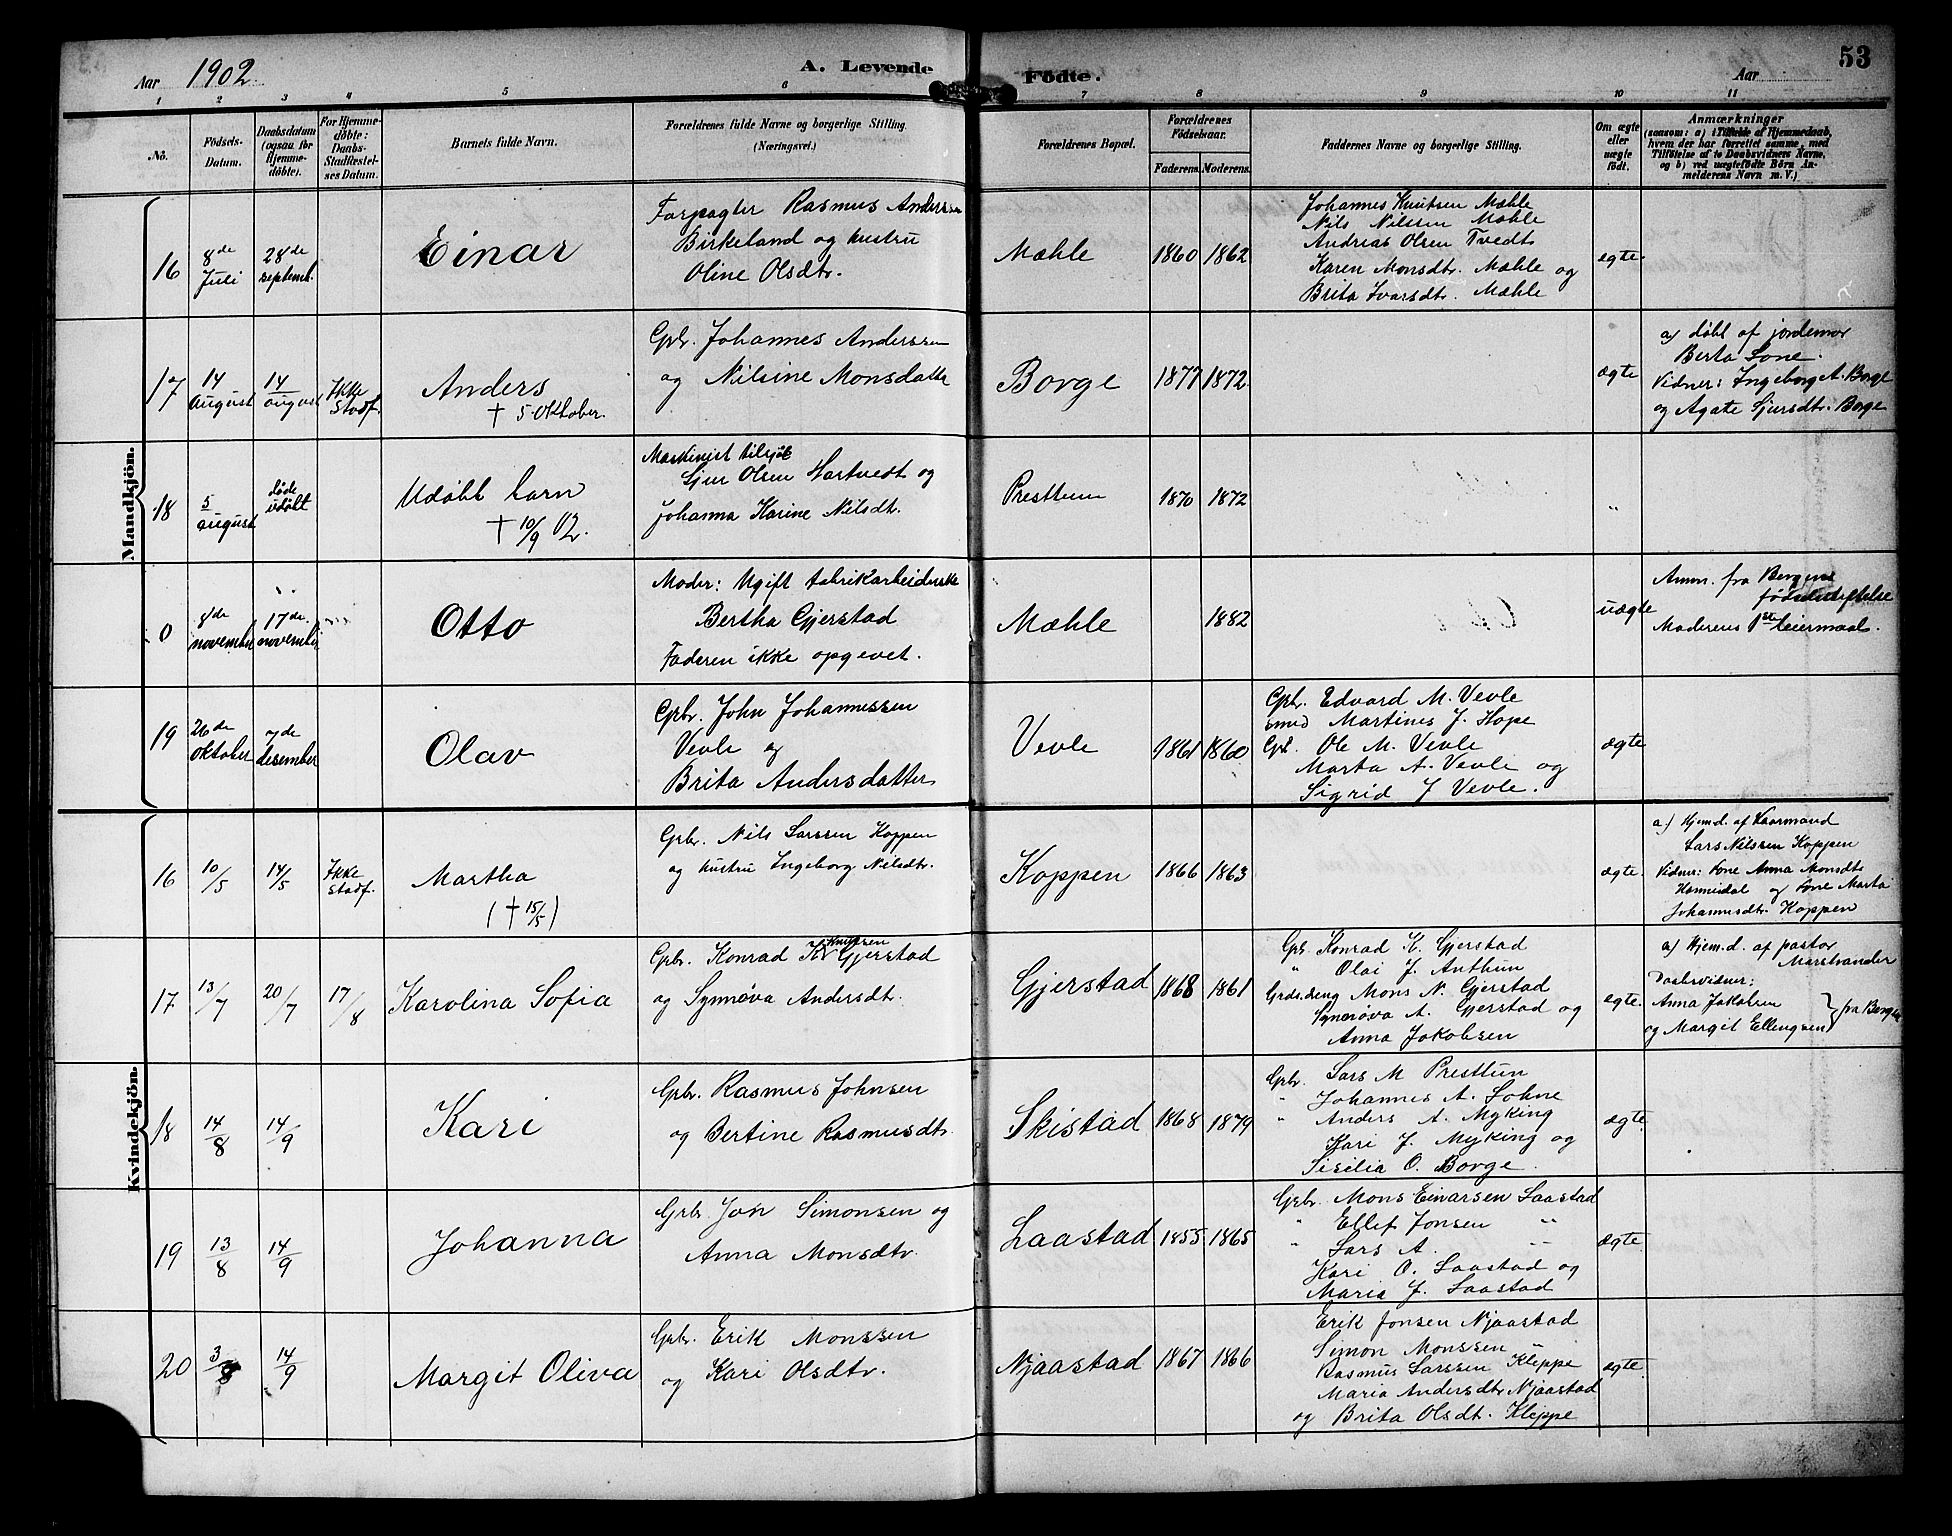 Aar 1902.
A. Levende Födte.
Aar
53
1 2 3 4 5 6 7 8 9 10 11
No.
Födsels-Datum.
Daabsdatum (ogsaa for Hjemmedöbte).
For Hjemmedöbte: Daabs-Stadfæstelses Datum.
Barnets fulde Navn.
Forældrenes fulde Navne og borgerlige Stilling.
(Næringsvei.)
Forældrenes Bopæl.
Forældrenes Födselsaar.
Faderens. Moderens.
Faddernes Navne og borgerlige Stilling.
Om ægte eller uægte födt.
Anmærkninger
(saasom: a) i Tilfælde af Hjemmedaab, hvem der har forrettet samme, med Tilföielse af to Daabsvidners Navne, og b) ved uægtefödte Börn Anmelderens Navn m. V.)
Mandkjön.
16
8de Juli
28de septemb.
Einar
Forpagter Rasmus Anderssen
Birkeland og hustru
Oline Olsdtr.
Mæhle
1860 1862
Johannes Knutsen Mæhle
Nils Nilssen Mæhle
Andreas Olsen Tvedt
Karen Monsdtr. Mæhle og
Brita Ivarsdtr. Mæhle
egte
17
14 august
14 august
Ikke stadf.
Anders
† 5 Oktober.
Gbr. Johannes Anderssen
og Nilsine Monsdatter
Borge
1877 1872
ægte
a) döbt af jordemor
Berta Lone.
Vidner: Ingeborg A. Borge
og Agate Sjursdtr. Borge
18
5 august
döde udöbt
Udöbt barn
† 10/9 02.
Maskinist tilsjös
Sjur Olsen Hartvedt og
Johanna Karine Nilsdtr.
Presttun
1870 1872
"
0
8de november
17de november
Otto
Moder: Ugift fabrikarbeiderske
Bertha Gjerstad
Faderen ikke opgevet.
Mæhle
1882
uægte
Anm. fra Bergens
födselsstiftelse
Moderens 1ste leiermaal.
19
26de oktober
7de desember
Olav
Gbr. John Johannessen
Vevle og
Brita Andersdatter
Vevle
1861 1860
Gbr. Edvard M. Vevle
smed Martines J. Hope
Gbr. Ole M. Vevle
Marta A. Vevle og
Sigrid J Vevle.
ægte
Kvindekjön.
16
10/5
14/5
Ikke stadf.
Martha
(† 15/5)
Gbr. Nils Larssen Koppen
og hustru Ingeborg Nilsdtr.
Koppen
1866 1863
ægte
a) Hjemd. af Kaarmand
Lars Nilssen Koppen
Vidner: Kone Anna Monsdtr
Hannisdal og Kone Marta
Johannesdtr. Koppen
17
13/7
20/7
17/8
Karolina Sofia
Gbr. Konrad K. Knutsen Gjerstad
og Synnøva Andersdtr.
Gjerstad
1868 1861
Gbr. Konrad K. Gjerstad
" Olai J. Anthun
Grds.deng Mons N. Gjerstad
Synnøva A. Gjerstad og
Anna Jakobsen
egte.
a) Hjem.d. af pastor
Marstrander
Daabsvidner:
Anna Jakobsen
og Margit Ellengsen } fra Bergen
18
14/8
14/9
Kari
Gbr. Rasmus Johnsen
og Bertine Rasmusdtr.
Skistad
1868 1879
Gbr. Lars M Presttun
" Johannes A. Lohne
" Anders A. Myking
Kari J. Myking og
Sisilia O. Borge.
ægte
19
13/8
14/9
Johanna
Grbr. Jon Simonsen og
Anna Monsdtr.
Laastad
1855 1865
Grbr. Mons Einarsen Laastad
" Ellef Jonsen "
" Lars A. "
Kari O. Laastad og
Maria J. Laastad
ægte
20
3/8
14/9
Margit Oliva
Grbr. Erik Monssen
og Kari Olsdtr.
Njaastad
1867 1866
Erik Jonsen Njaastad
Simon Monssen "
Rasmus Larssen Kleppe
Maria Andersdtr Njaastad
og Brita Olsdt. Kleppe
ægte